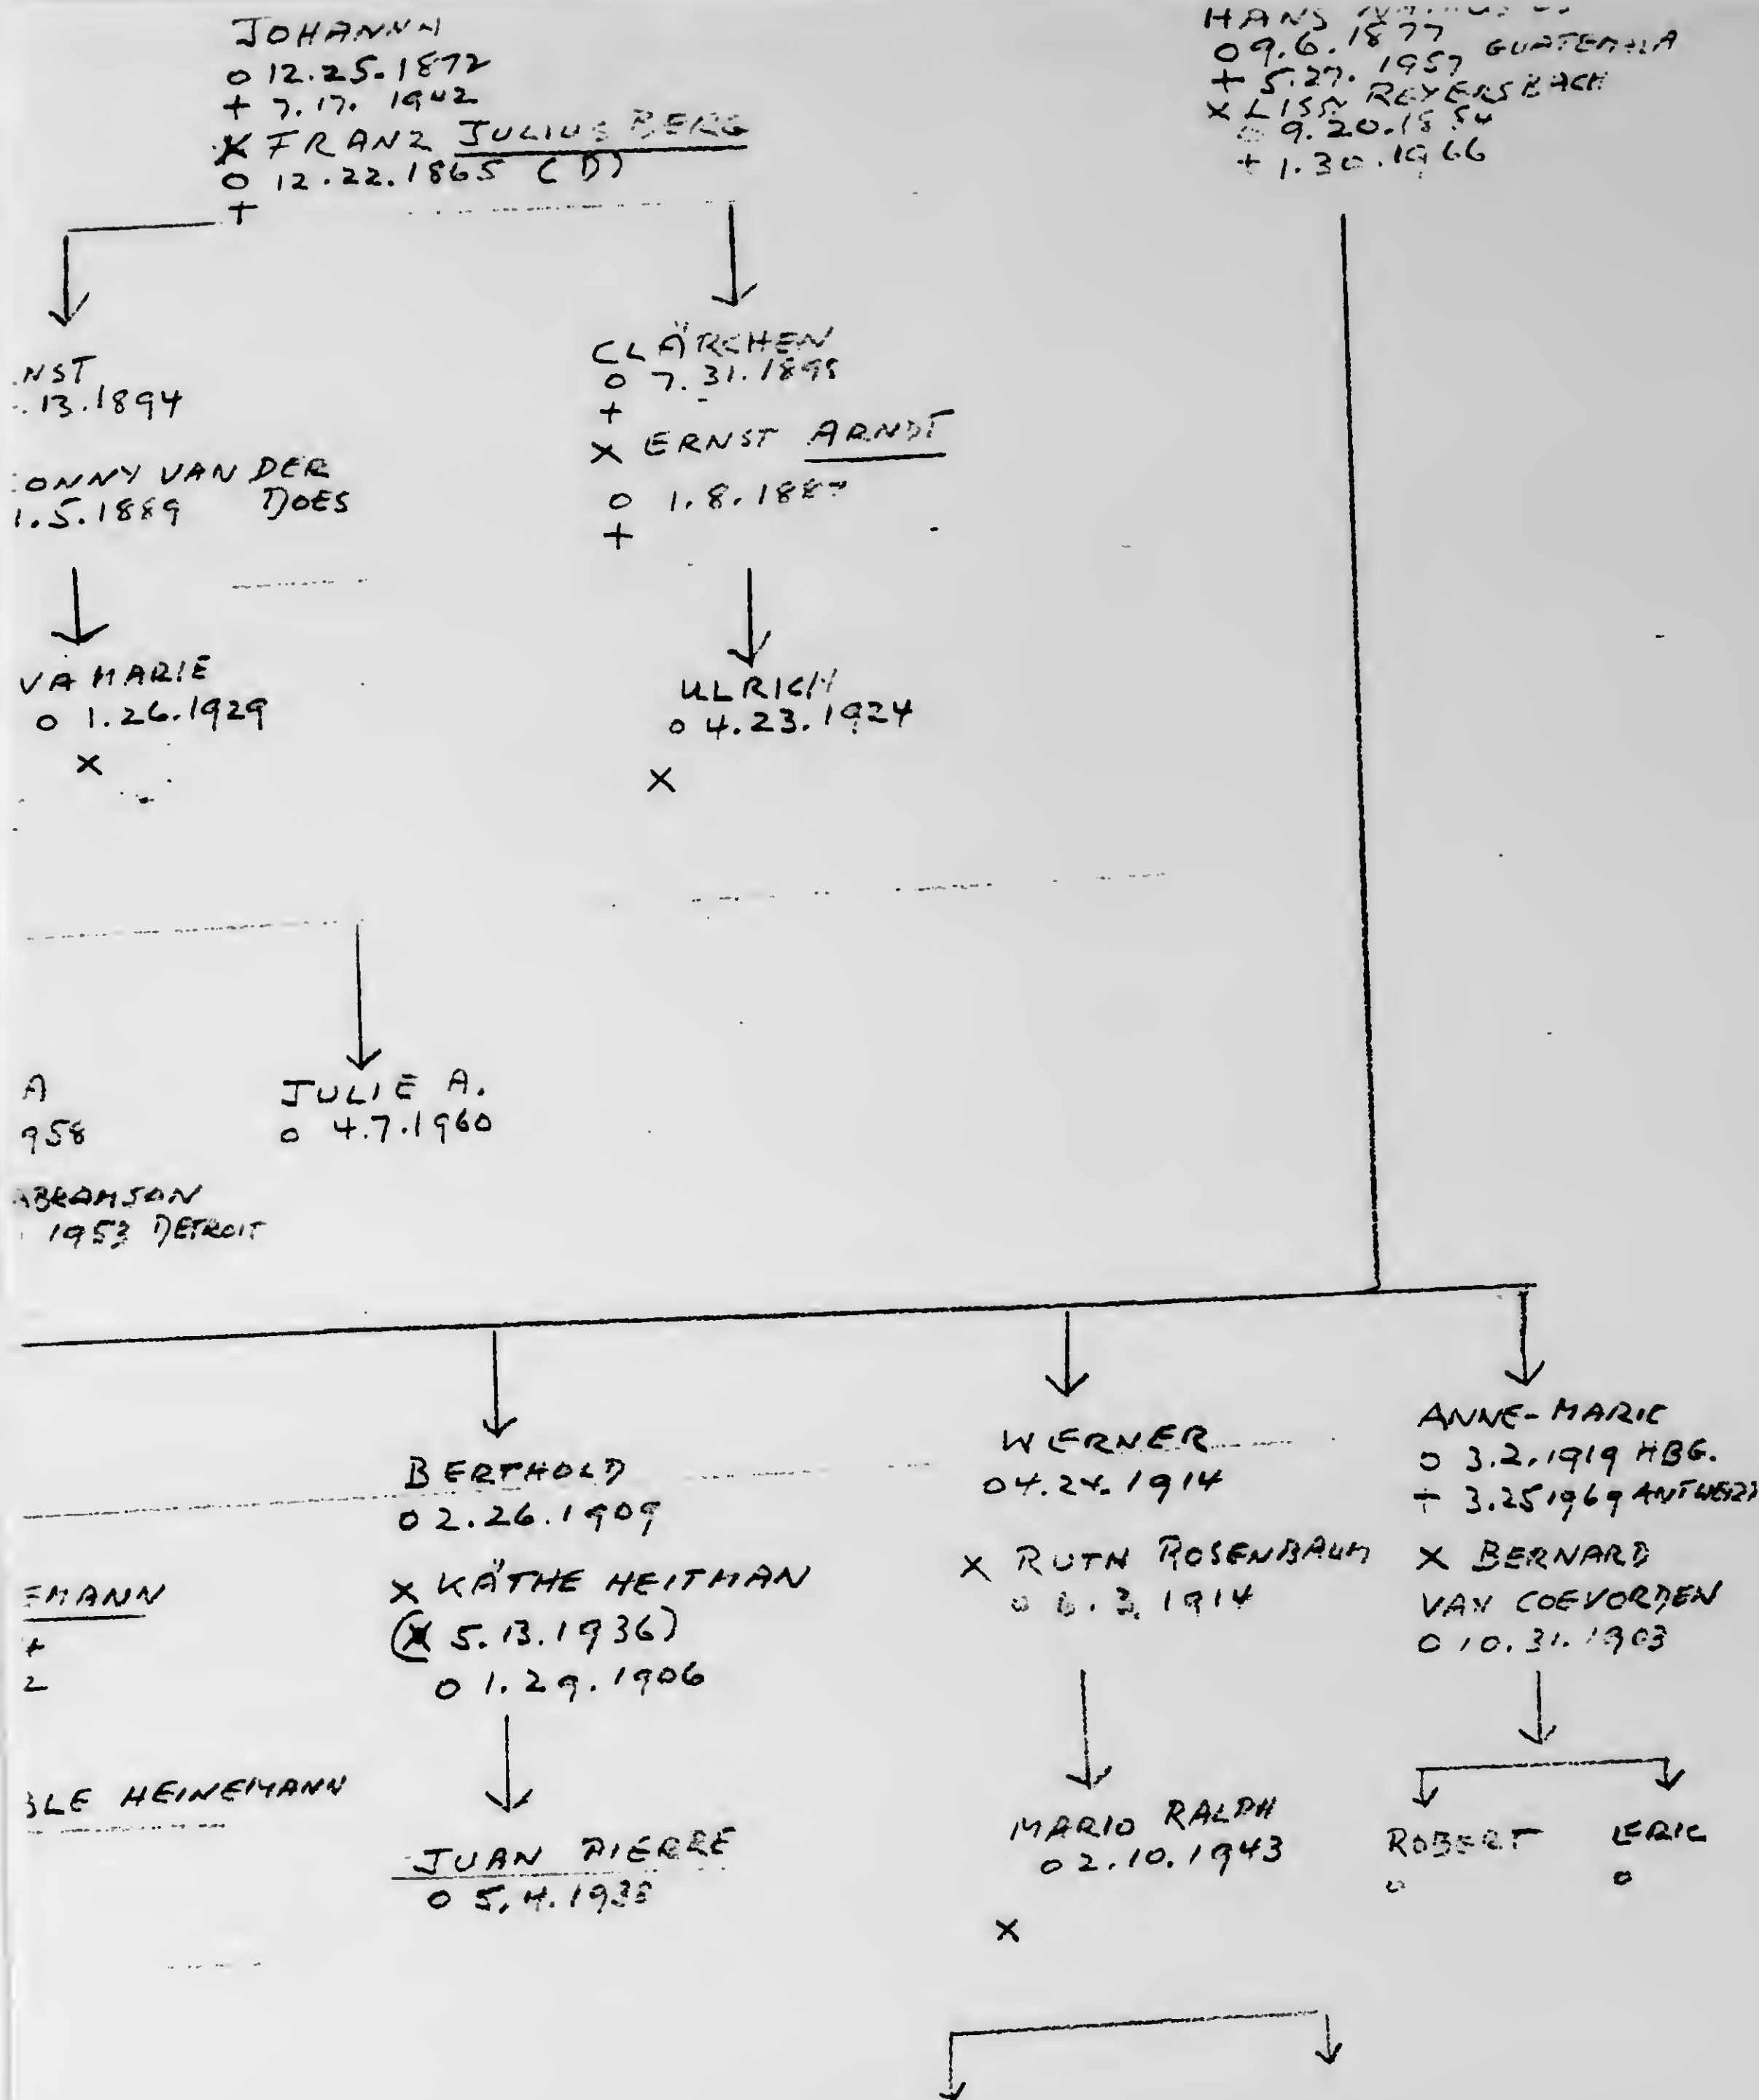 JOHANNA
o 12.25.1872
+ 7.17. 1942
X FRANZ JULIUS BERG
o 12.22.1865 (D)
+
HANS
o 9.6.1877
+ 5.27. 1957 GUATEMALA
X LISSY REYERSBACH
o 9.20.1884
+ 1.30.1966
NST
.13.1894
ONNY VAN DER
1.5.1889 DOES
CLÄRCHEN
o 7.31.1898
+
X ERNST ARNDT
o 1.8.1887
+
VA MARIE
o 1.26.1929
X
ULRICH
o 4.23.1924
X
A
958
ABRAMSON
1953 DETROIT
JULIE A.
o 4.7.1960
EMANN
+
2
BLE HEINEMANN
BERTHOLD
o 2.26.1909
X KÄTHE HEITMAN
(X 5.13.1936)
o 1.29.1906
JUAN PIERRE
o 5.4.1938
WERNER
o 4.24.1914
X RUTH ROSENBAUM
o 6.3.1914
MARIO RALPH
o 2.10.1943
X
ANNE-MARIE
o 3.2.1919 HBG.
+ 3.25 1969 ANTWERP
X BERNARD
VAN COEVORDEN
o 10.31.1903
ROBERT
o
ERIC
o